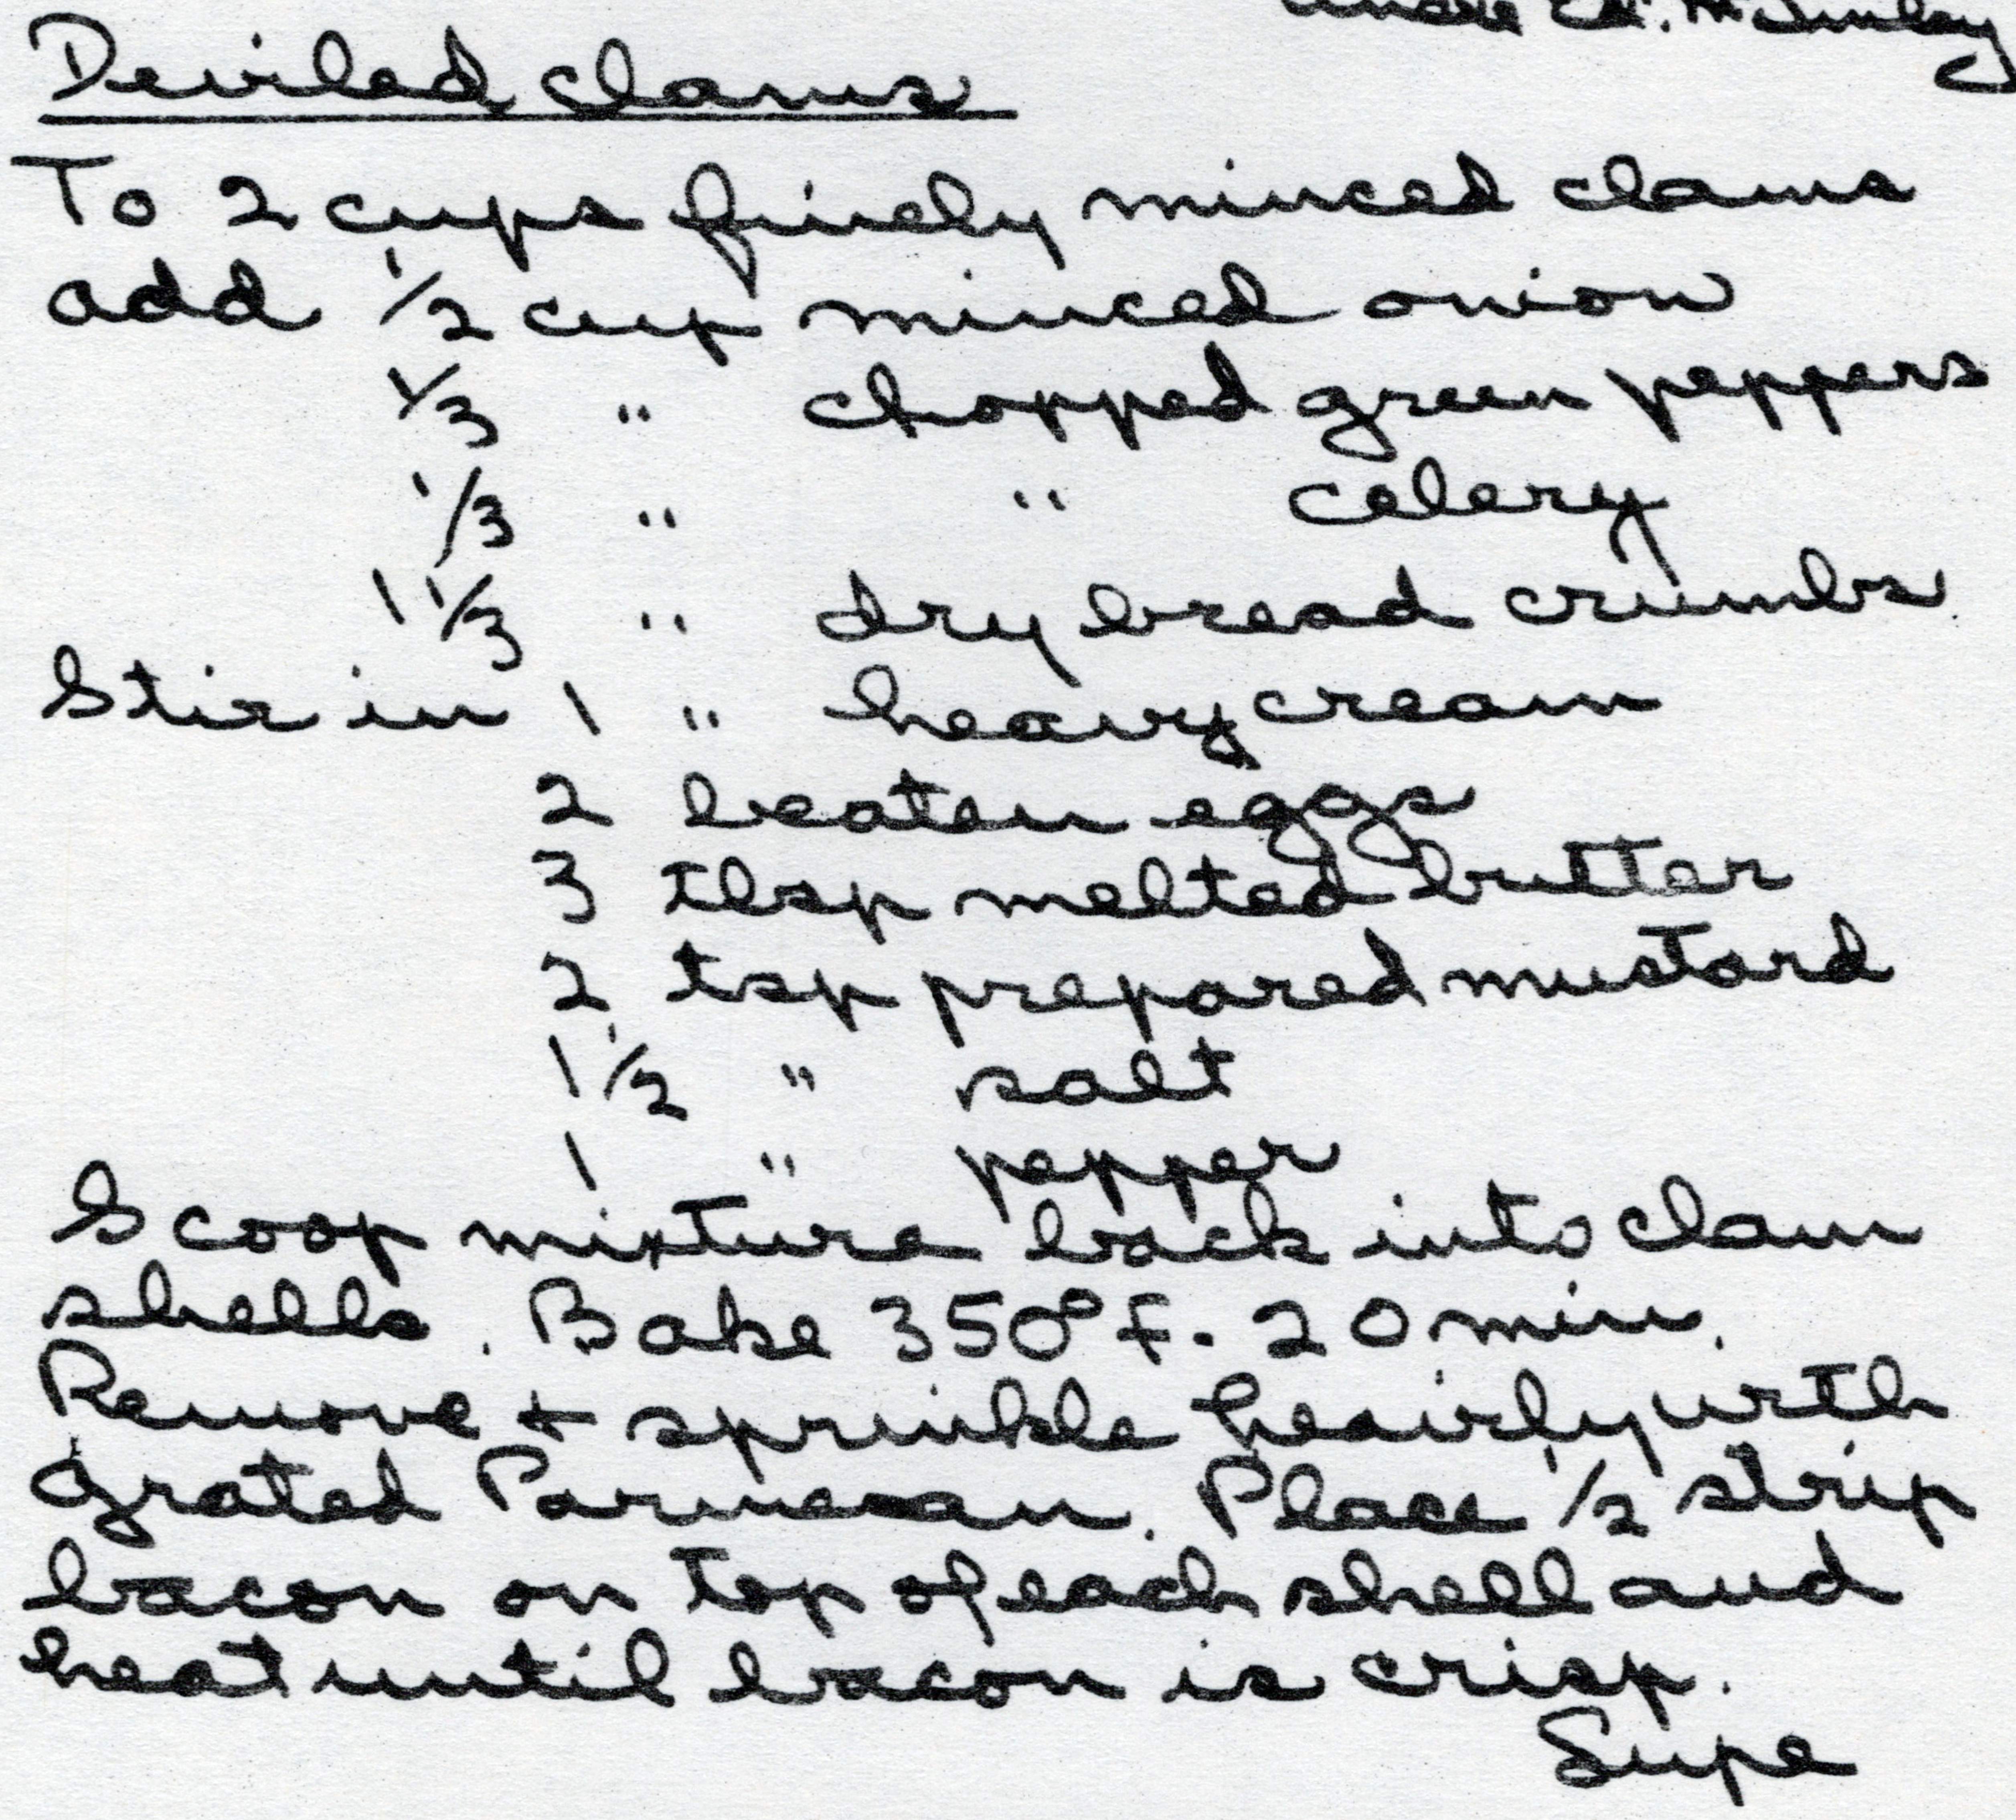 Uncle Ed. McGinley
Deviled clams
To 2 cups finely minced clams
add 1/2 cup minced onion
1/3 " chopped green peppers
1/3 " " celery
1 1/3 " dry bread crumbs.
Stir in 1 " heavy cream
2 beaten eggs
3 tbsp melted butter
2 tsp prepared mustard
1 1/2 " salt
1 " pepper
Scoop mixture back into clam
shells. Bake 350° F. 20 min.
Remove + sprinkle heavily with
grated Parmesan. Place 1/2 strip
bacon on top of each shell and
heat until bacon is crisp.
Supe